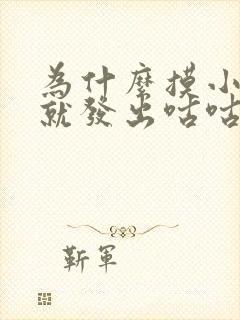 為什麼摸小
就發出咕咕
靳軍